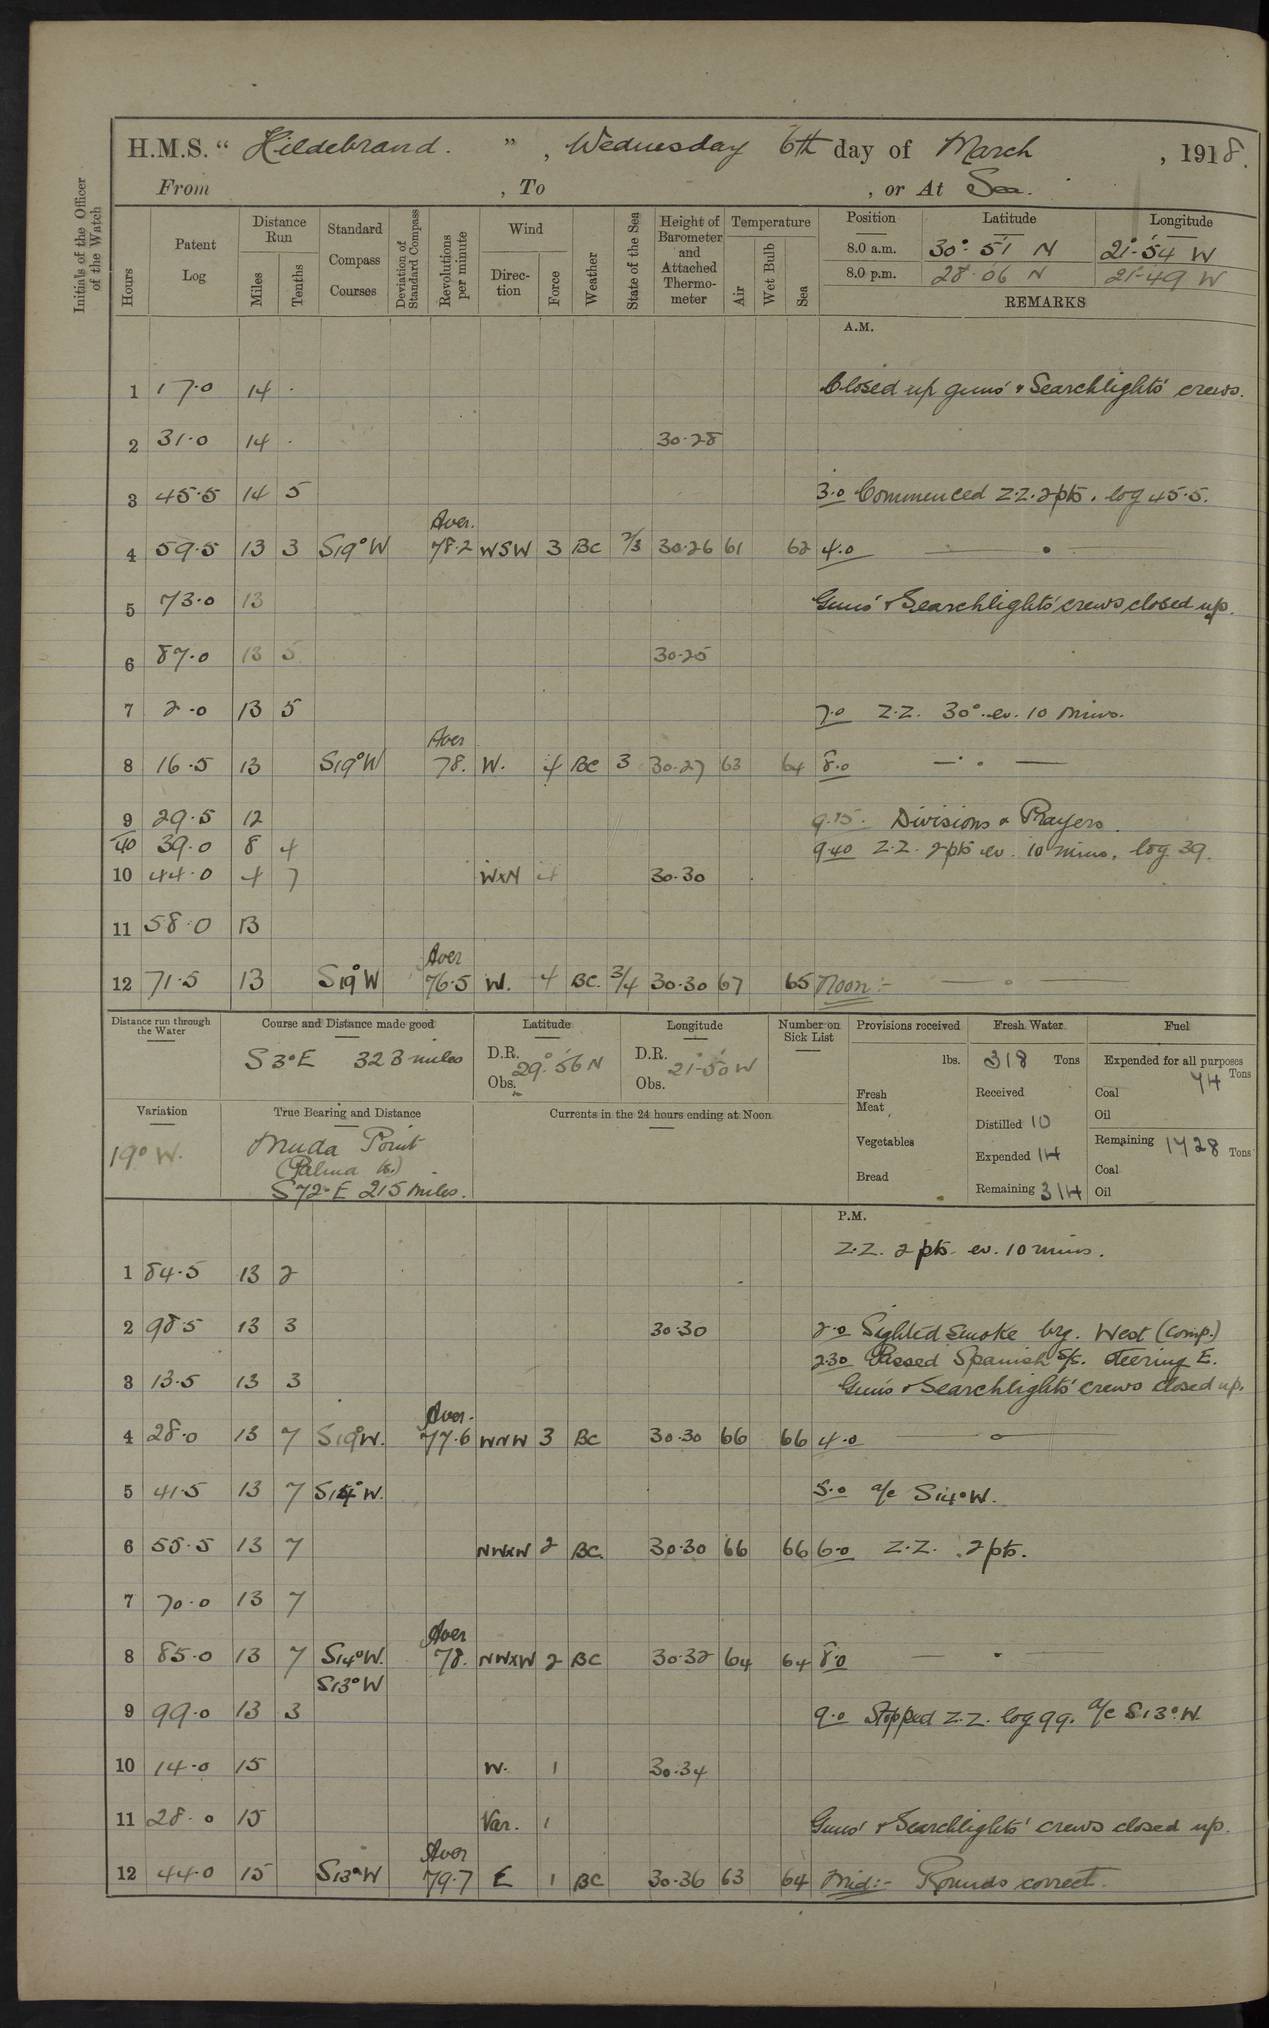 H.M.S. “ Hildebrand. ” , Wednesday 6th day of March , 1918.
From , To , or At Sea.
Initials of the Officer of the Watch
Hours
Patent Log
Distance Run
Miles
Tenths
Standard Compass Courses
Deviation of Standard Compass
Revolutions per minute
Wind
Direction
Force
Weather
State of the Sea
Height of Barometer and Attached Thermometer
Temperature
Air
Wet Bulb
Sea
Position Latitude Longitude
8.0 a.m. 30° 51' N 21°-54' W
8.0 p.m. 28° 06 N 21°-49 W
REMARKS
A.M.
1 17.0 14 . Closed up guns' & Searchlights' crews.
2 31.0 14 . 30.28
3 45.5 14 5 3.0 Commenced Z.Z. 2pts. log 45.5.
Aver.
4 59.5 13 3 S19°W 78.2 WSW 3 BC 2/3 30.26 61 62 4.0
5 73.0 13 Guns' & Searchlights' crews closed up.
6 87.0 13 5 30.25
7 2.0 13 5 7.0 Z.Z. 30° ev. 10 mins.
Aver
8 16.5 13 S19°W 78. W. 4 BC 3 30.27 63 64 8.0
9 29.5 12 9.15. Divisions & Prayers.
/40 39.0 8 4 9.40 Z.Z. 2pts ev. 10 mins. log 39.
10 44.0 4 7 WxN 4 30.30
11 58.0 13
Aver
12 71.5 13 S19°W 76.5 W. 4 BC. 3/4 30.30 67 65 Noon:-
Distance run through the Water
Course and Distance made good
S3°E 323 miles
Latitude
D.R. 29° 56' N
Obs.
Longitude
D.R. 21°-50' W
Obs.
Number on Sick List
Provisions received
lbs.
Fresh Meat
Vegetables
Bread
Fresh Water
318 Tons
Received
Distilled 10
Expended 14
Remaining 314
Fuel
Expended for all purposes
74 Tons
Coal
Oil
Remaining 1728 Tons
Coal
Oil
Variation
19° W.
True Bearing and Distance
Muda Point
(Palma Is.)
S72°E 215 miles.
Currents in the 24 hours ending at Noon
P.M.
Z.Z. 2pts. ev. 10 mins.
1 84.5 13 2
2 98.5 13 3 30.30 2.0 Sighted smoke brg. West (comp.)
2.30 Passed Spanish S/S. steering E.
3 13.5 13 3 Guns' & Searchlights' crews closed up.
Aver.
4 28.0 13 7 S19°W. 77.6 WNW 3 BC 30.30 66 66 4.0
5 41.5 13 7 S14°W. 5.0 a/c S14°W.
6 55.5 13 7 NWxW 2 BC. 30.30 66 66 6.0 Z.Z. 2pts.
7 70.0 13 7
Aver
8 85.0 13 7 S14°W. 78. NWxW 2 BC 30.32 64 64 8.0
S13°W
9 99.0 13 3 9.0 Stopped Z.Z. log 99. a/c S13°W.
10 14.0 15 W. 1 30.34
11 28.0 15 Var. 1 Guns' & Searchlights' crews closed up.
Aver
12 44.0 15 S13°W 79.7 E 1 BC 30.36 63 64 Mid:- Rounds correct.